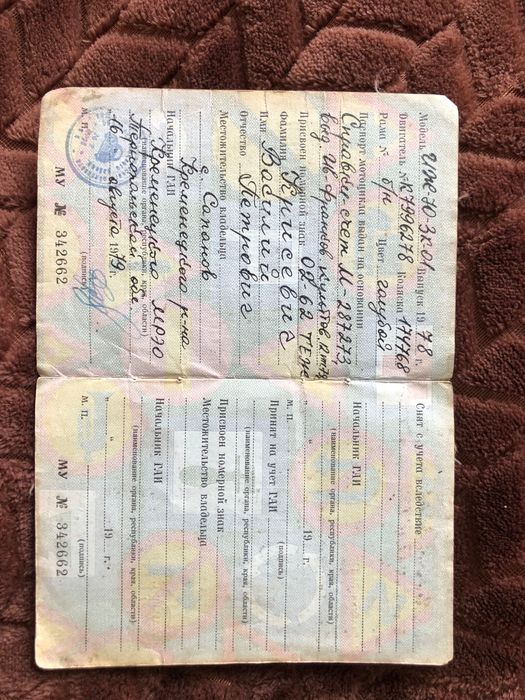 Модель ИЖ-Ю-3К-01 Выпуск 1978 г.
Двигатель № К7996278 Коляска 174768
Рама № б/н Цвет голубой
Паспорт мотоцикла выдан на основании
Справки-счет М-287273,
выд. Ив-Франков
Присвоен номерной знак 02-62 ТЕЖ
Фамилия Крисевич
Имя Василий
Отчество Петрович
Местожительство владельца
с. Сапанов
Кременецкого р-на
Начальник ГАИ Кременецкого МРЭО
(наименование органа, республики, края, области)
Тернопольской обл.
16 августа 1979 г.
М. П. (подпись)
МУ № 342662
Снят с учета вследствие
Начальник ГАИ
(наименование органа, республики, края, области)
„ “ 19 г.
М. П. (подпись)
Принят на учет ГАИ
(наименование органа, республики, края, области)
Присвоен номерной знак
Местожительство владельца
Начальник ГАИ
(наименование органа, республики, края, области)
„ “ 19 г.
М. П. (подпись)
МУ № 342662